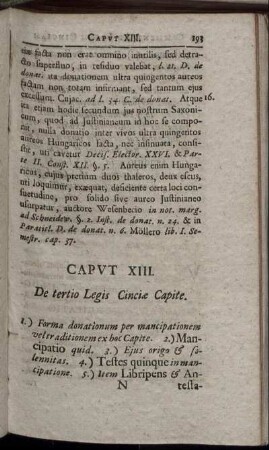 CAPVT XIII. 193
tum facta non erat omnino inutilis, sed detra-
cto superfluo, in residuo valebat, l. 21. D. de
donat. ita donationem ultra quingentos aureos
factam non totam infirmant, sed tantum ejus
excessum. Cujac. ad l. 34. C. de donat. Atque 16.
ita etiam hodie secundum jus nostrum Saxoni-
cum, quod ad Justinianeum in hoc se compo-
nit, nulla donatio inter vivos ultra quingentos
aureos Hungaricos facta, nec insinuata, consi-
stit, uti cavetur Decis. Elector. XXVI. & Par-
te II. Const. XII. §. 5. Aureis enim Hunga-
ricus, cujus pretium duos thaleros, deux escus,
uti loquimur, exæquat, deficiente certa loci con-
svetudine, pro solido sive aureo Justinianeo
usurpatur, auctore Wesenbecio in not. marg.
ad Schneidew. §. 2. Inst. de donat. n. 24. & in
Paratitl. D. de donat. n. 6. Möllero lib. 1. Se-
mestr. cap. 37.
CAPVT XIII.
De tertio Legis Cinciæ Capite.
1.) Forma donationum per mancipationem
vel traditionem ex hoc Capite. 2.) Man-
cipatio quid. 3.) Ejus origo & so-
lennitas. 4.) Testes quinque in man-
cipatione. 5.) Item Libripens & An-
N testa-